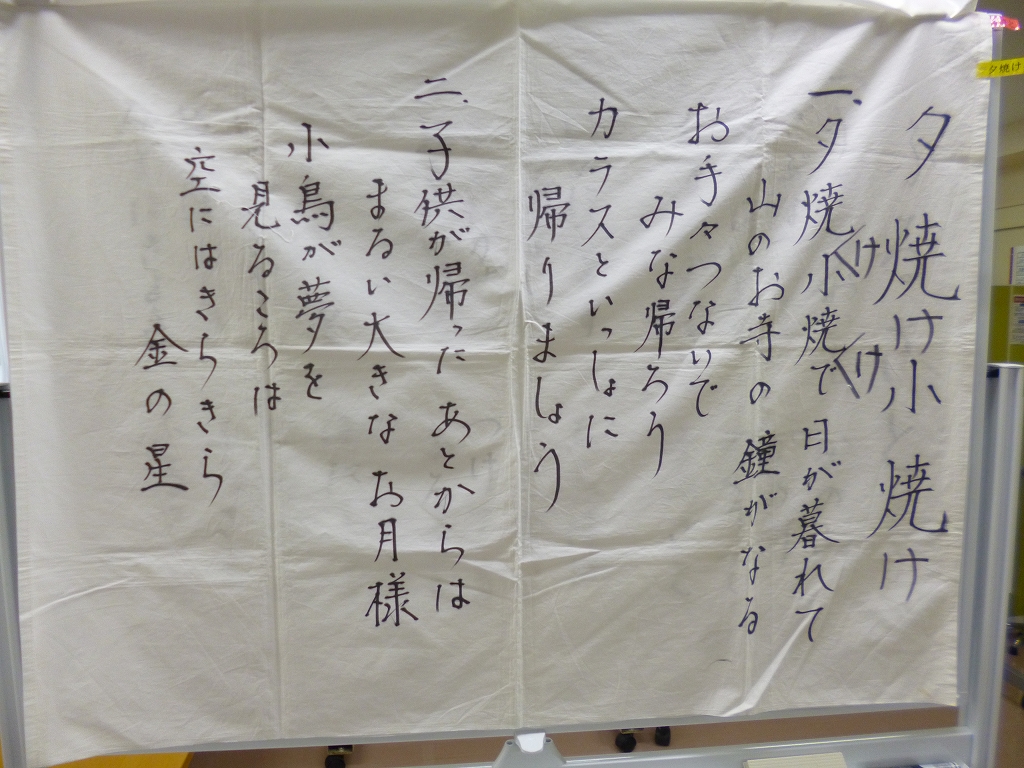 夕焼け小焼け
一、夕焼け小焼けで日が暮れて
山のお寺の鐘がなる
お手々つないで
みな帰ろう
カラスといっしょに
帰りましょう
二、子供が帰った あとからは
まるい大きな お月様
小鳥が夢を
見るころは
空にはきらきら
金の星
夕焼け